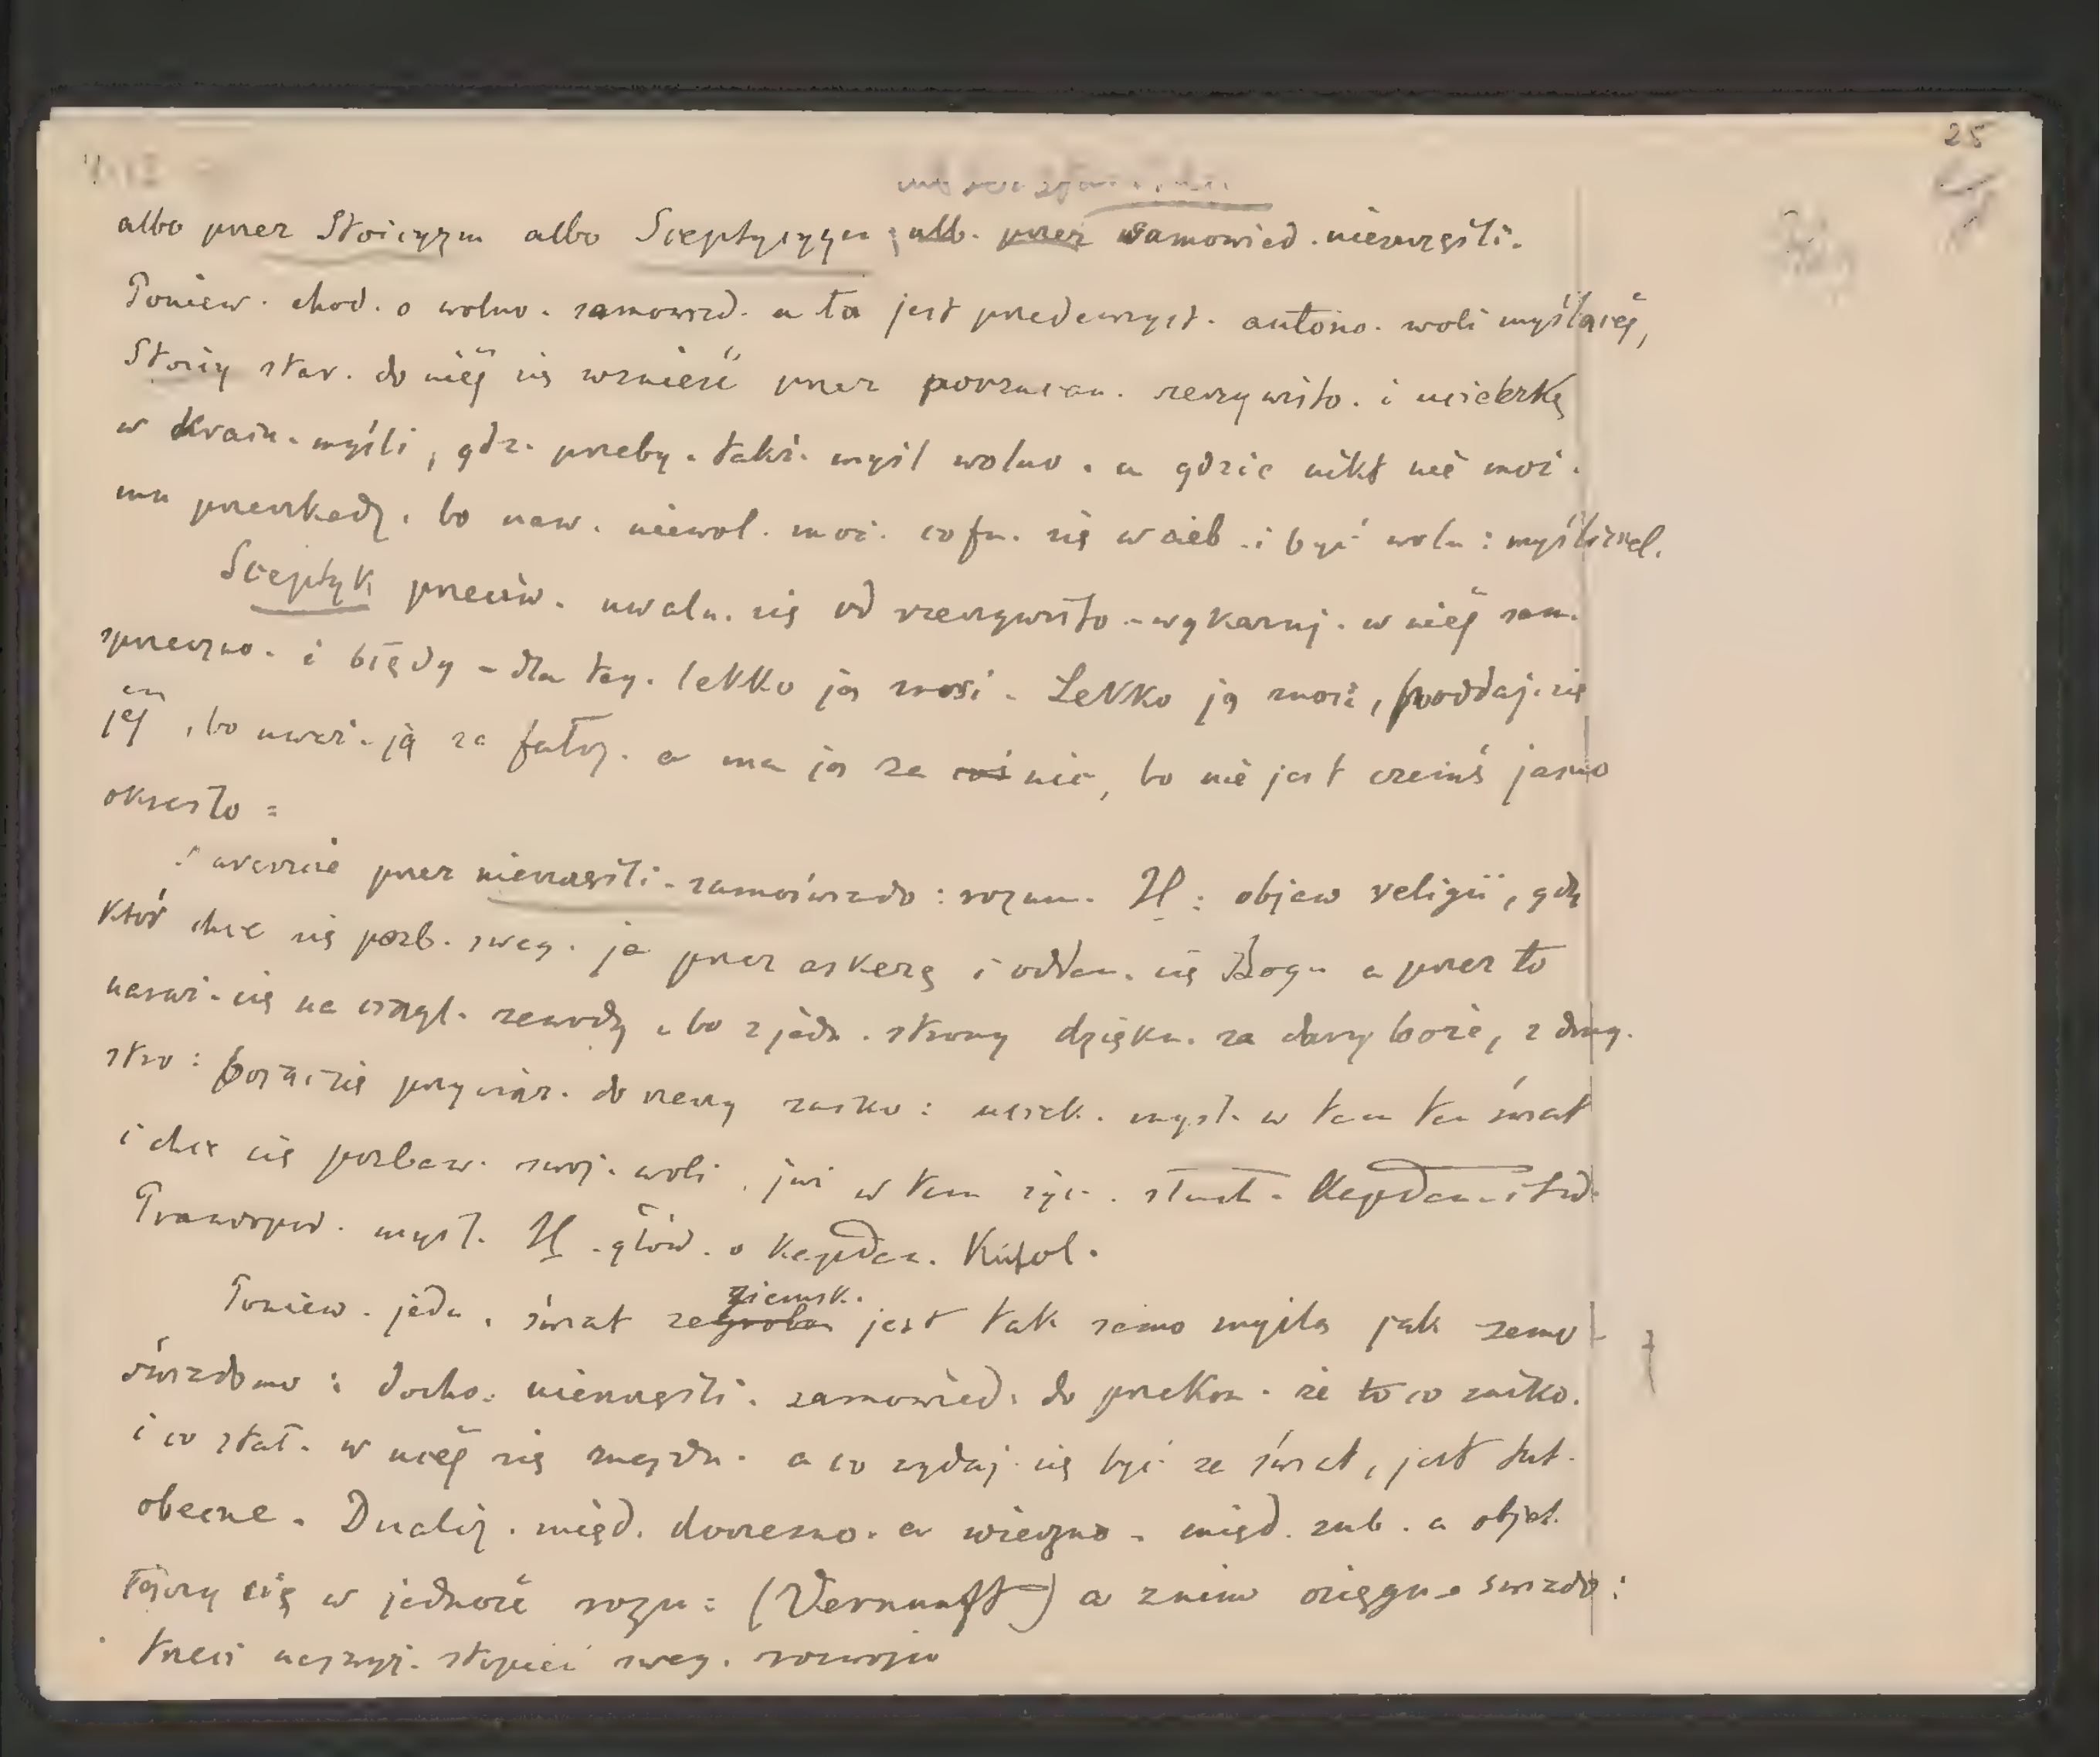 25
albo przez Stoicyzm albo Sceptycyzm, alb. przez samowied. nieszczęśli.
Poniew. chod. o wolno. samowied. a ta jest przedewszyst. autono. woli myślącéj,
Stoicy star. do niéj się wznieść przez porzucan. rzeczywisto. i ucieczkę
w krain. myśli, gdz. przeby. takż. myśl wolno. a gdzie nikt nie moż.
mu przeszkadz. bo naw. niewol. moż. cofn. się w sieb. i być woln: myślicıel.
Sceptyk przeciw. uwaln. się od rzeczywisto. wykazuj. w niéj sam.
sprzeczno. i błędy - dla teg. lekko ją znosi. Lekko ją znosi, poddaj. się
jéj, bo uważ. ją za fałsz. a ma ją za coś nic, bo nie jest czemś jasno
określo:
Nareszcie przez nieszczęśli. samoświado: rozum. H: objaw religii, gdy
ktoś chce się pozb. sweg. ja przez askezę i oddan. się Bogu a przez to
naraż. się na ciągł. zawody, bo z jedn. strony dzięku. za dary boże, z drug.
stro: poczu. się przywiąz. do rzeczy zmysło: uciek. myśl. w tam ten świat
i chce się pozbaw. swoj. woli, już w tem życ. słuch. Kapłan.
Prawdopod. myśl. H. głów. o kapłan. Katol.
Poniew. jedn. świat zagrobo. ziemsk. jest tak samo myślą jak samo
świadomo: docho. nieszczęśli. samowied. do przekon. że to co
i co stał. w niéj się znajdu. a co zydaj się być za świat, jest tut.
obecne. Dualiz. międ. doczesno. a wieczno. międ. sub. a objek.
łączy się w jedność rozu: (Vernunft) a z nim osięgn. świado:
trzeci najwyż. stopień sweg. rozwoju